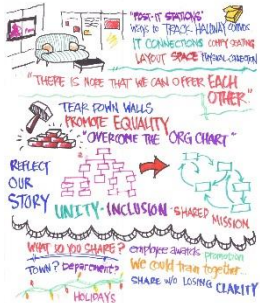 "POST-IT STATIONS"
ways to TRACK HALLWAY CONVOS
IT CONNECTIONS COMFY SEATING
LAYOUT SPACE PHYSICAL CONNECTION
"THERE IS MORE THAT WE CAN OFFER EACH
OTHER."
TEAR DOWN WALLS
PROMOTE EQUALITY
"OVERCOME THE "ORG CHART"
REFLECT
OUR
STORY
UNITY · INCLUSION · SHARED MISSION
WHAT DO YOU SHARE? employee awards promotion
TOWN? Department? We could train together...
SHARE W/O LOSING CLARITY
HOLIDAYS